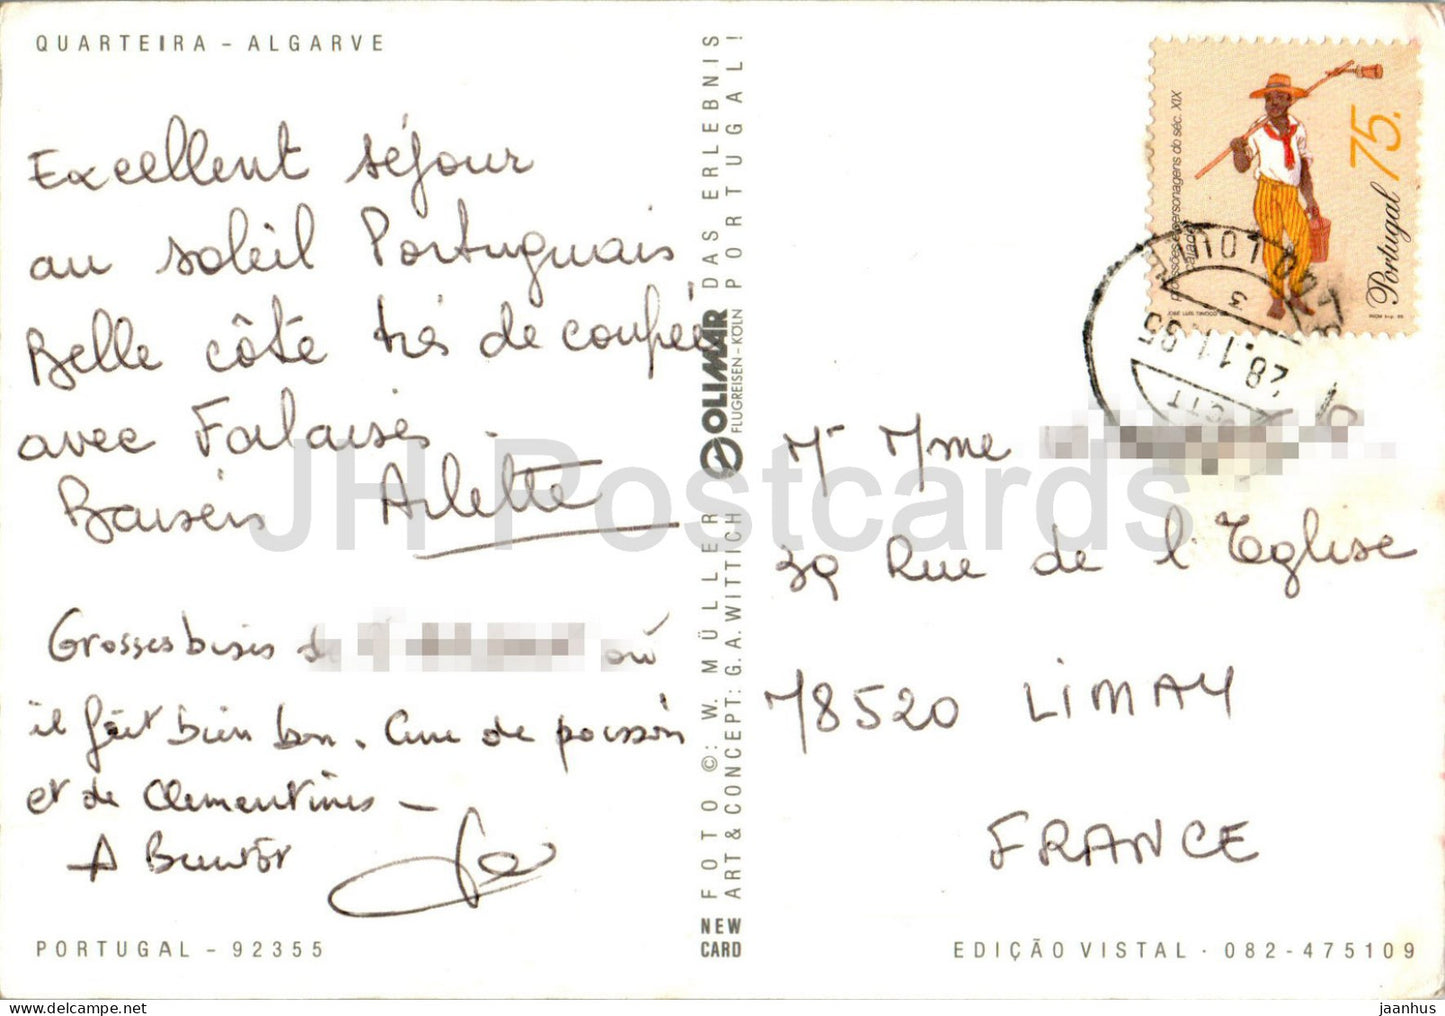 QUARTEIRA - ALGARVE
Excellent séjour
au soleil Portuguais
Belle côte très de coupée
avec Falaises.
Baisers Arlette
Grosses bises de où
il fait bien bon. Cure de poisson
et de Clementines -
A Bientôt
PORTUGAL - 92355
DAS ERLEBNIS
PORTUGAL!
OLIMAR
FLUGREISEN - KÖLN
FOTO ©: W. MÜLLER
ART & CONCEPT: G. A. WITTICH
NEW
CARD
Portugal 75.
profissões e personagens do séc. XIX
caiador
JOSÉ LUIS TINOCO
INCM Imp. 95
3
28.11.95
CTT
Mr Mme
39 Rue de l'Eglise
78520 LIMAY
FRANCE
EDIÇÃO VISTAL · 082-475109
JH Postcards
https://www.delcampe.net
jaanhus